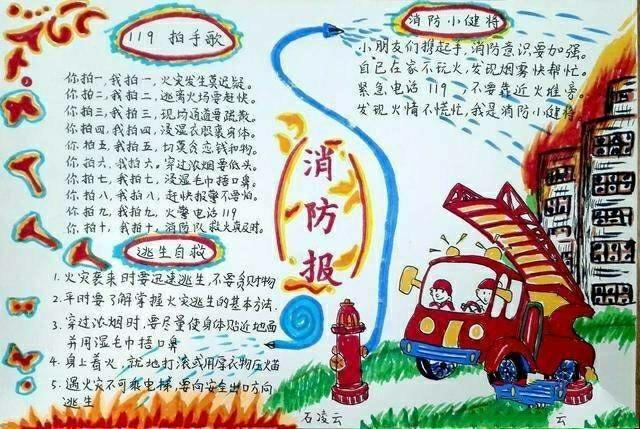 119 拍手歌
你拍一,我拍一,火灾发生莫迟疑。
你拍二,我拍二,逃离火场要赶快。
你拍三,我拍三,现场通道要疏散。
你拍四,我拍四,浸湿衣服裹身体。
你拍五,我拍五,切莫贪恋钱和物。
你拍六,我拍六,穿过浓烟要低头。
你拍七,我拍七,浸湿毛巾捂口鼻。
你拍八,我拍八,赶快报警不要怕。
你拍九,我拍九,火警电话119
你拍十,我拍十,消防队救火真及时。
逃生自救
1.火灾袭来时要迅速逃生,不要贪财物
2.平时要了解掌握火灾逃生的基本方法.
3.穿过浓烟时,要尽量使身体贴近地面
并用湿毛巾捂口鼻
4.身上着火,就地打滚或用厚衣物压火苗
5.遇火灾不可乘电梯,要向安全出口方向
逃生
消防报
消防小健将
小朋友们携起手,消防意识要加强。
自己在家不玩火,发现烟雾快帮忙。
紧急电话119 不要靠近火堆旁。
发现火情不慌忙,我是消防小健将
石凌云
云